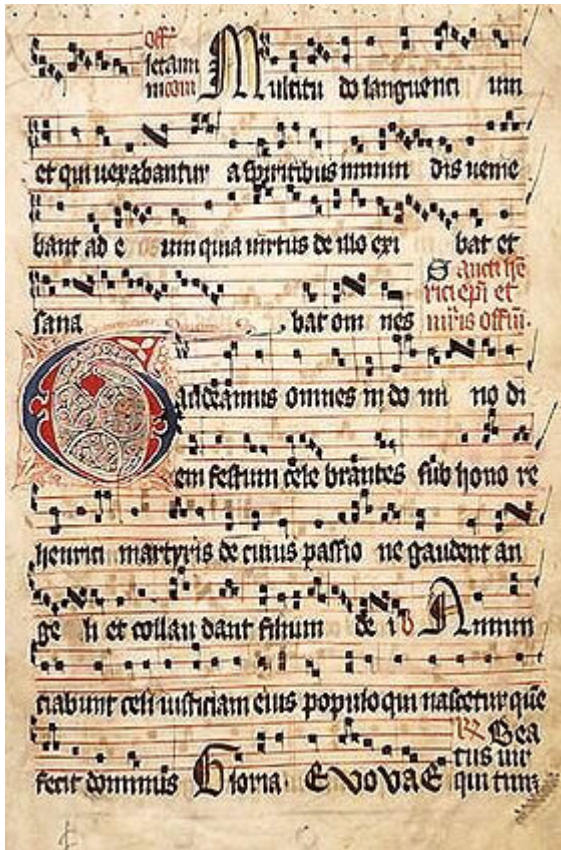 Multitu do languenti um
et qui uexabantur a spiritibus inmun dis uenie
bant ad e um quia uirtus de illo exi bat et
sana bat om nes
Sancti hē
rici epī et
mr̄is offiū.
Gaudeamus omnes in do mi no di
em festum cele brantes sub hono re
henrici martyris de cuius passio ne gaudent an
ge li et collau dant filium de i V Annun
ciabunt celi iusticiam eius populo qui nascetur quē
fecit dominus Gloria. EVOVAE
Bea
tus uir
qui tim